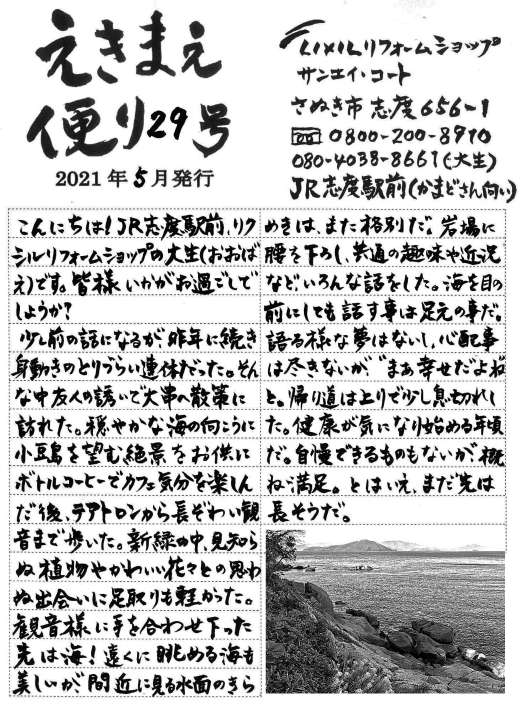 えきまえ
便り29号
2021年5月発行
LIXILリフォームショップ
サンエイ・コート
さぬき市志度656-1
0800-200-8910
080-4038-8661(大生)
JR志度駅前(かまどさん向い)
こんにちは!JR志度駅前、リク
シルリフォームショップの大生(おおば
え)です。皆様いかがお過ごしで
しょうか?
少し前の話になるが、昨年に続き
身動きのとりづらい連休だった。そん
な中友人の誘いで大串へ散策に
訪れた。穏やかな海の向こうに
小豆島を望む絶景をお供に
ボトルコーヒーでカフェ気分を楽しん
だ後、テアトロンから長ぞわい観
音まで歩いた。新緑の中、見知ら
ぬ植物やかわいい花々との思わ
ぬ出会いに足取りも軽かった。
観音様に手を合わせ下った
先は海!遠くに眺める海も
美しいが、間近に見る水面のきら
めきは、また格別だ。岩場に
腰を下ろし、共通の趣味や近況
などいろんな話をした。海を目の
前にしても話す事は足元の事だ。
語る様な夢はないし、心配事
は尽きないが、“まあ幸せだよね”
と。帰り道は上りで少し息切れし
た。健康が気になり始める年頃
だ。自慢できるものもないが、概
ね満足。とはいえ、まだ先は
長そうだ。